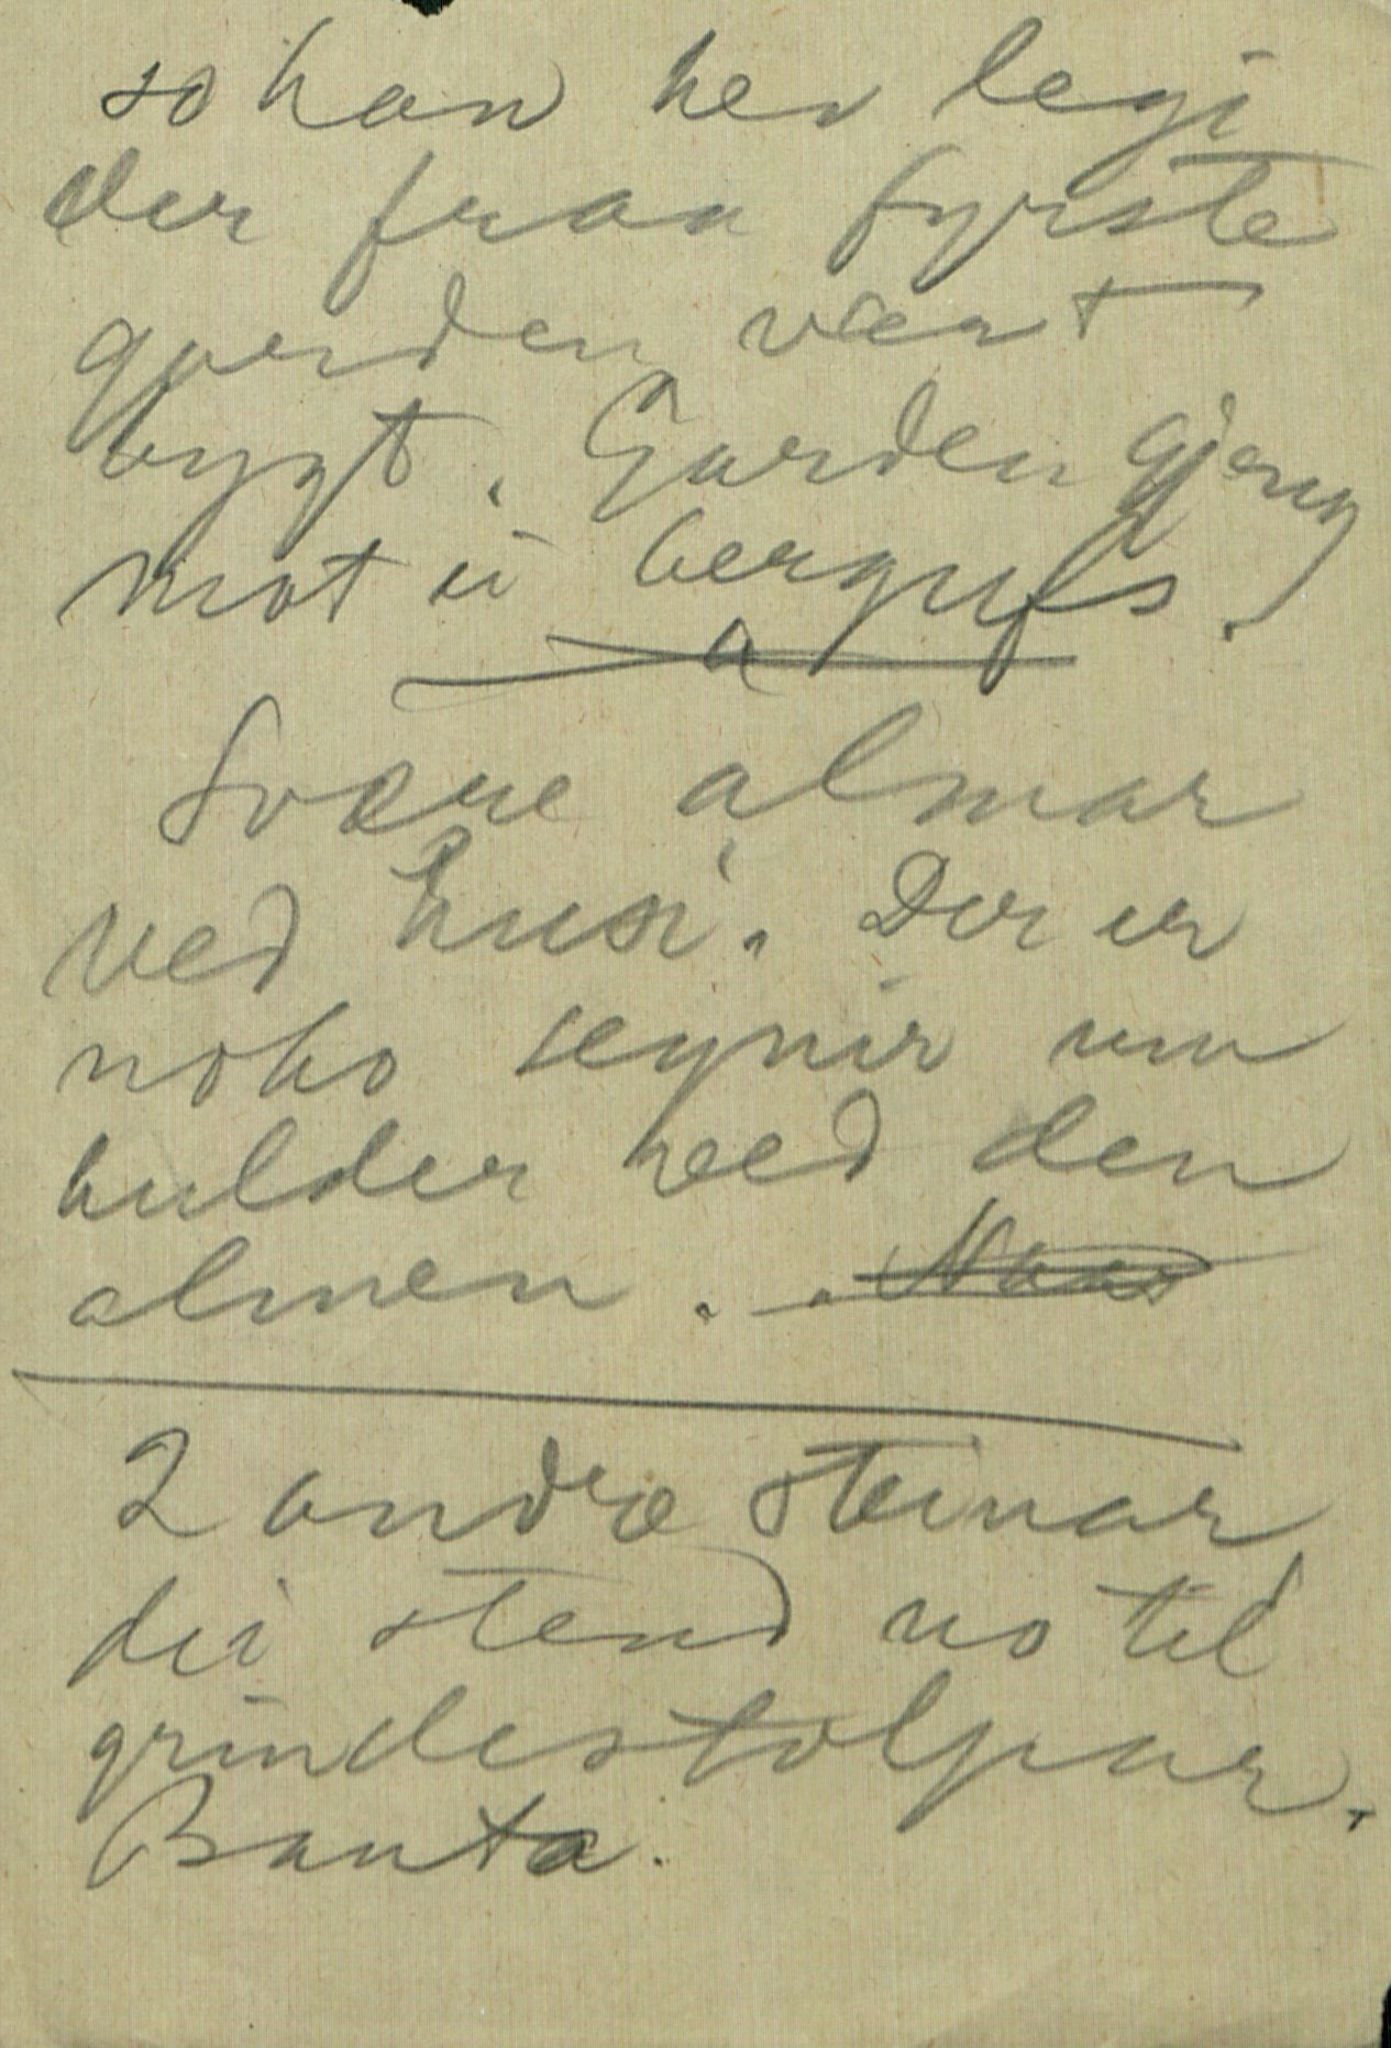 so han hev legi
der fraa fyrste
garden vart
bygt. Garden gjeng
mot ei bergufs.
a
Svære almar
ved husi. Der er
noko segnir um
hulder ved den
almen.
2 andre steinar
dei stend no til
grindestolpar.
Bauta.